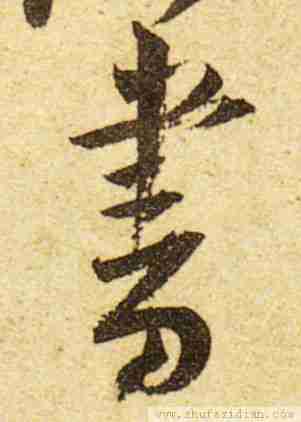 書
www.shufazidian.com